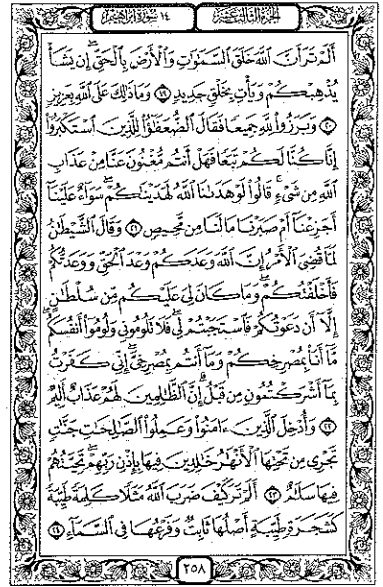 الجزء الثالث عشر ١٤ سورة إبراهيم
أَلَمْ تَرَ أَنَّ ٱللَّهَ خَلَقَ ٱلسَّمَٰوَٰتِ وَٱلْأَرْضَ بِٱلْحَقِّ ۚ إِن يَشَأْ
يُذْهِبْكُمْ وَيَأْتِ بِخَلْقٍ جَدِيدٍ ١٩ وَمَا ذَٰلِكَ عَلَى ٱللَّهِ بِعَزِيزٍ
٢٠ وَبَرَزُوا۟ لِلَّهِ جَمِيعًا فَقَالَ ٱلضُّعَفَٰٓؤُا۟ لِلَّذِينَ ٱسْتَكْبَرُوٓا۟
إِنَّا كُنَّا لَكُمْ تَبَعًا فَهَلْ أَنتُم مُّغْنُونَ عَنَّا مِنْ عَذَابِ
ٱللَّهِ مِن شَىْءٍ ۚ قَالُوا۟ لَوْ هَدَىٰنَا ٱللَّهُ لَهَدَيْنَٰكُمْ ۖ سَوَآءٌ عَلَيْنَآ
أَجَزِعْنَآ أَمْ صَبَرْنَا مَا لَنَا مِن مَّحِيصٍ ٢١ وَقَالَ ٱلشَّيْطَٰنُ
لَمَّا قُضِىَ ٱلْأَمْرُ إِنَّ ٱللَّهَ وَعَدَكُمْ وَعْدَ ٱلْحَقِّ وَوَعَدتُّكُمْ
فَأَخْلَفْتُكُمْ ۖ وَمَا كَانَ لِىَ عَلَيْكُم مِّن سُلْطَٰنٍ
إِلَّآ أَن دَعَوْتُكُمْ فَٱسْتَجَبْتُمْ لِى ۖ فَلَا تَلُومُونِى وَلُومُوٓا۟ أَنفُسَكُم ۖ
مَّآ أَنَا۠ بِمُصْرِخِكُمْ وَمَآ أَنتُم بِمُصْرِخِىَّ ۖ إِنِّى كَفَرْتُ
بِمَآ أَشْرَكْتُمُونِ مِن قَبْلُ ۗ إِنَّ ٱلظَّٰلِمِينَ لَهُمْ عَذَابٌ أَلِيمٌ
٢٢ وَأُدْخِلَ ٱلَّذِينَ ءَامَنُوا۟ وَعَمِلُوا۟ ٱلصَّٰلِحَٰتِ جَنَّٰتٍ
تَجْرِى مِن تَحْتِهَا ٱلْأَنْهَٰرُ خَٰلِدِينَ فِيهَا بِإِذْنِ رَبِّهِمْ ۖ تَحِيَّتُهُمْ
فِيهَا سَلَٰمٌ ٢٣ أَلَمْ تَرَ كَيْفَ ضَرَبَ ٱللَّهُ مَثَلًا كَلِمَةً طَيِّبَةً
كَشَجَرَةٍ طَيِّبَةٍ أَصْلُهَا ثَابِتٌ وَفَرْعُهَا فِى ٱلسَّمَآءِ ٢٤
٢٥٨